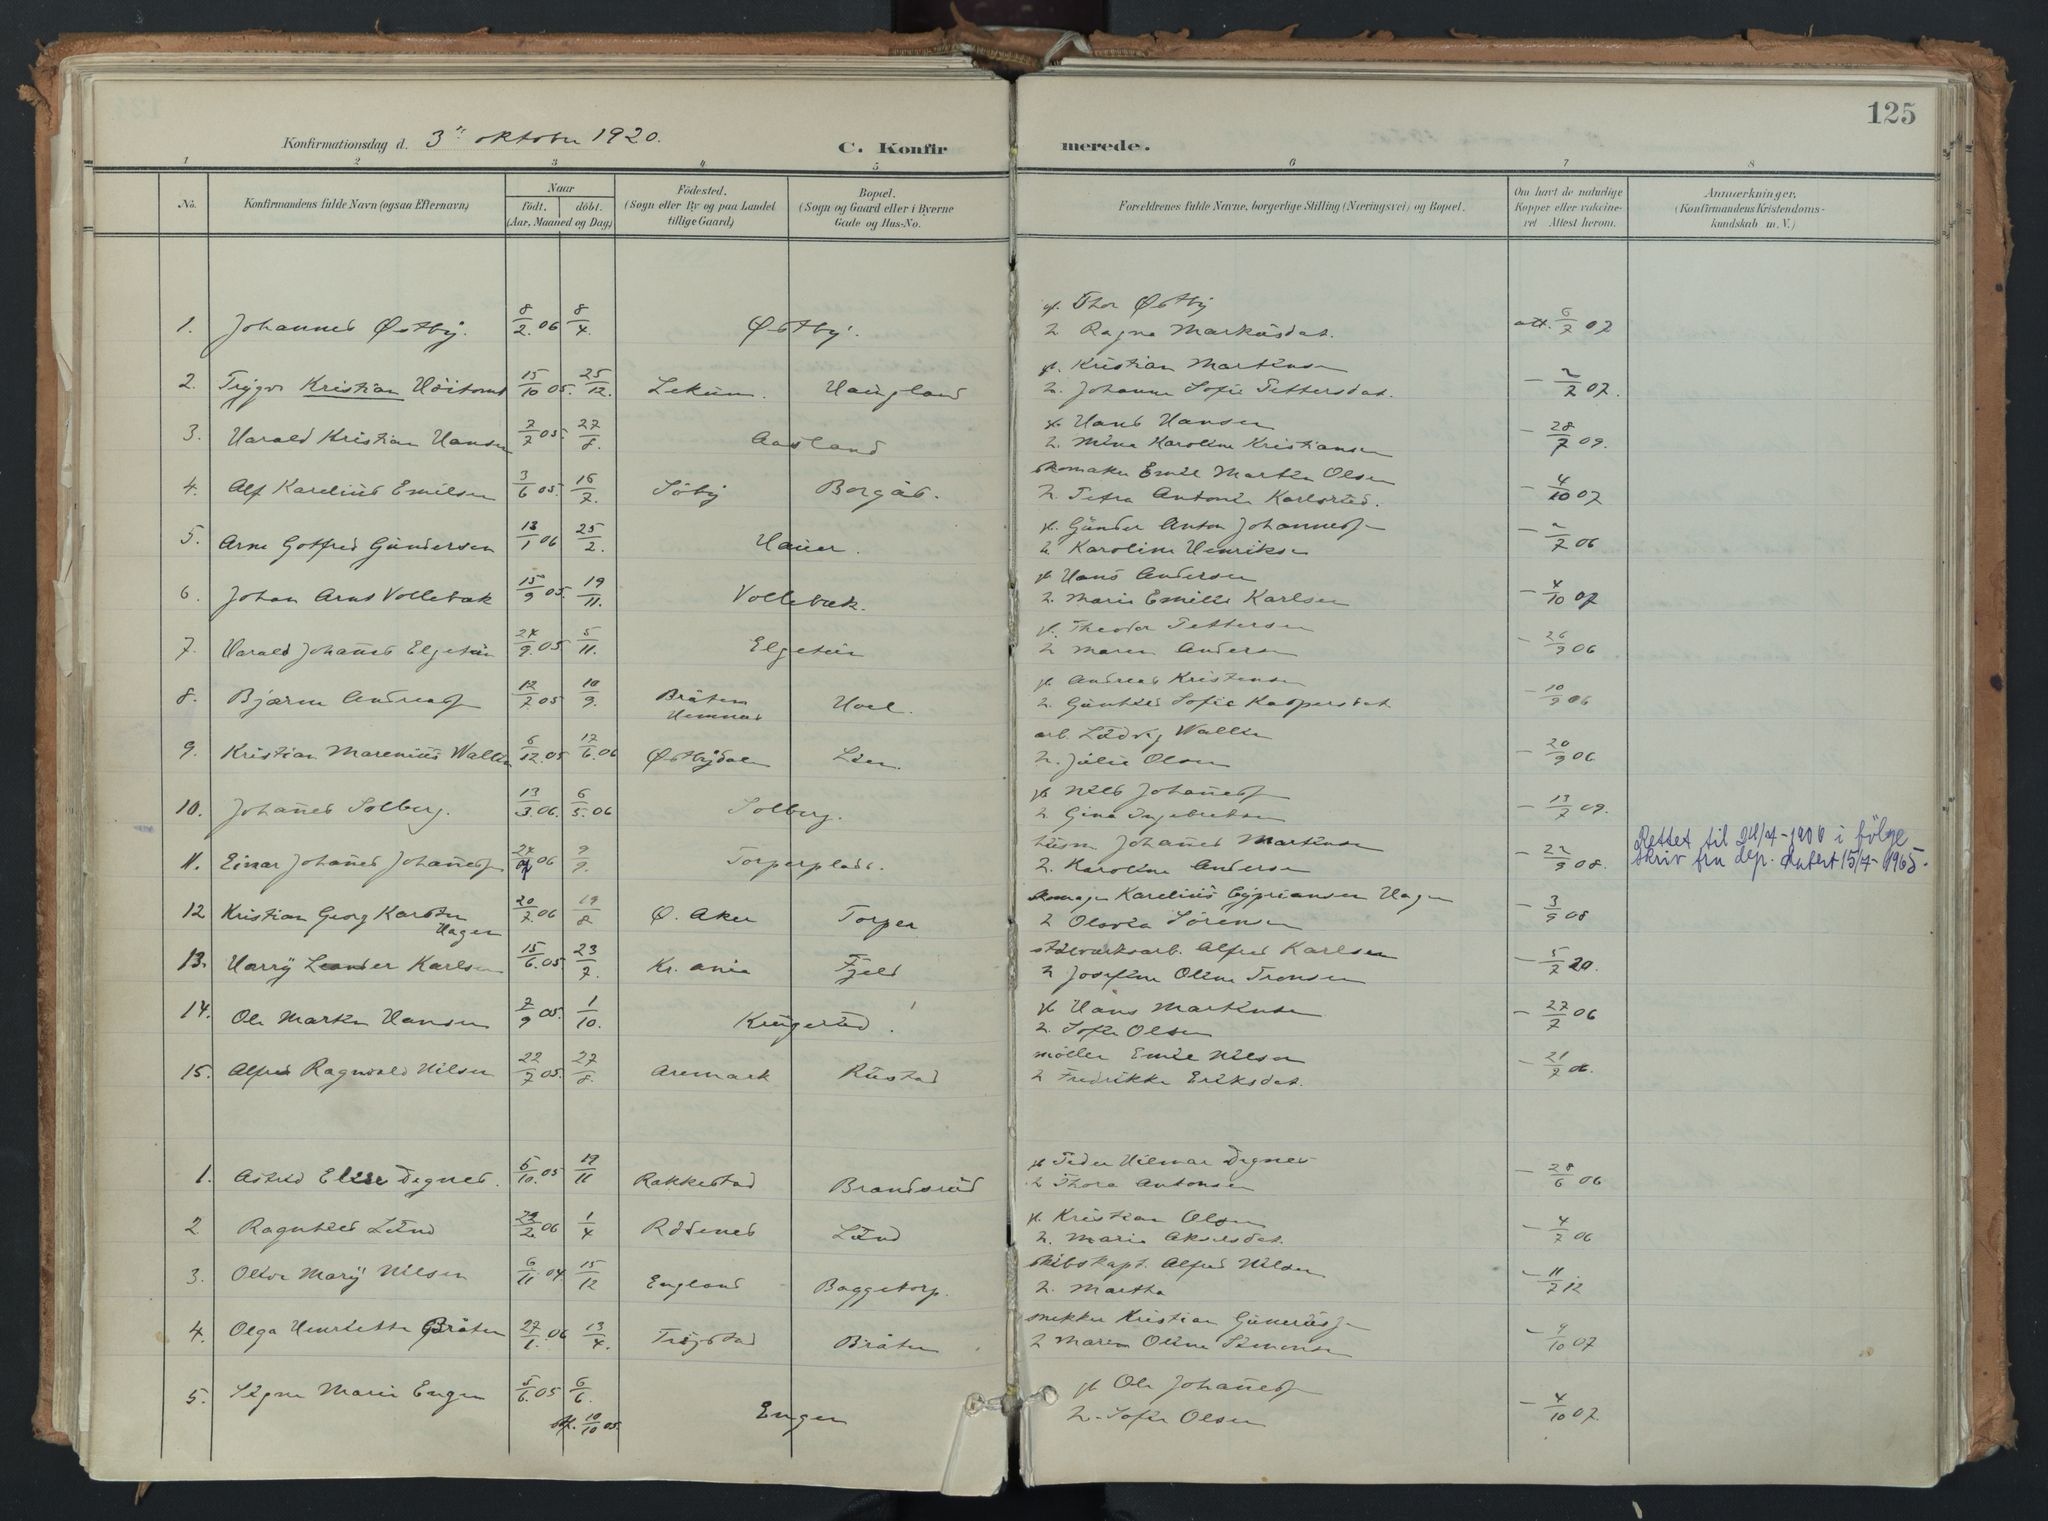 125
Konfirmationsdag d. 3" oktober 1920.
C. Konfirmerede.
1 2 3 4 5 6 7 8
No. Konfirmandens fulde Navn (ogsaa Efternavn) Naar født. døbt. (Aar, Maaned og Dag) Födested. (Sogn eller By og paa Landet tillige Gaard) Bopæl. (Sogn og Gaard eller i Byerne Gade og Hus-No. Forældrenes fulde Navne, borgerlige Stilling (Næringsvei) og Bopæl. Om havt de naturlige Kopper eller vaccineret Attest herom. Anmærkninger, (Konfirmandens Kristendomskundskab m. V.)
1. Johannes Østby. 8/2 06 8/4. Østby. gb. Thor Østby
h. Ragna Markusdat. att. 6/7 07
2. Trygve Kristian Høitomt 15/10 05. 25/12. Lekum. Haugland gb. Kristian Martinsen
h. Johanne Sofie Pettersdat. – 2/7 07.
3. Harald Kristian Hansen 7/7 05. 27/8. Aasland gb. Hans Hansen
h. Mina Karoline Kristiansen – 28/7 09.
4. Alf Karelius Emilsen 3/6 05. 16/7. Søby Borgås. skomaker Emil Martin Olsen
h. Petra Antonie Karlsrud. – 4/10 07
5. Arne Gotfred Gundersen 13/1 06 25/2. Hauer. gb. Gunder Anton Johanness
h. Karoline Henriksen – 2/7 06
6. Johan Arnt Vollebæk 15/9 05. 19/11. Vollebæk. gb. Hans Andersen
h. Marie Emilie Karlsen – 4/10 07
7. Harald Johannes Elgetun 24/9. 05 5/11. Elgetun gb. Theodor Pettersen
h. Maren Andersen – 26/9 06
8. Bjarne Andreass 12/7 05 10/9. Bråten Hemnes Hoel. gb. Andreas Kristensen
h. Gunhild Sofie Kaspersdat. – 10/9 06
9. Kristian Marenius Wallin 6/12. 05 17/6. 06 Østbydalen Lien. arb. Ludvig Wallin
h. Julie Olsen – 20/9 06
10. Johannes Solberg. 13/3. 06. 6/5. 06 Solberg. gb. Nils Johanness
h. Gina Ingebretsen – 13/7 09.
11. Einar Johannes Johanness 24/4 06 9/9. Torperplads. husm. Johannes Martinsen
h. Karoline Andersen – 22/9 08. Rettet til 24/4-1906 i følge
skriv fra dep. datert 15/4-1965.
12 Kristian Georg Karsten
Hagen 20/7 06 19/8 Ø. Aker Torper Karelius Cyprian­sen Hagen
h Olovia Sørensen – 3/9 08
13. Harry Leander Karlsen 15/6. 05 23/7. Kr.ania Fjeld stålværksarb. Alfred Karlsen
h Josefine Oline Tronsen – 5/7 20.
14. Ole Martin Hansen 7/9 05. 1/10. Krugerud gb Hans Martinsen
h. Sofie Olsen – 27/7 06
15. Alfred Ragnvald Nilsen 22/7 05. 27/8. Aremark Rustad møller Emil Nilsen
h Fredrikke Eriksdat. – 21/7 06.
1. Astrid Elise Degnes. 5/10. 05 19/11 Rakkestad Brandsrud gb Peder Hilmar Degnes
h Thora Antonsen – 28/6 06
2 Ragnhild Lund 2/2 06 1/4 Rødenes Lund gb. Kristian Olsen
h. Marie Akselsdat. – 4/7 06
3. Olive Mary Nilsen 6/11 04 15/12 England Baggetorp. skibskapt. Alfred Nilsen
h. Martha – 11/7 12
4. Olga Henriette Bråten 27/1. 06 13/4. Trøgstad Bråten snekker Kristian Guneriuss
h Maren Oline Simonsen – 4/10 07
5. Signe Marie Engen 5/6. 05 6/6.
10/10 05. Engen gb Ole Johanness
h. Sofie Olsen – 4/10 07.